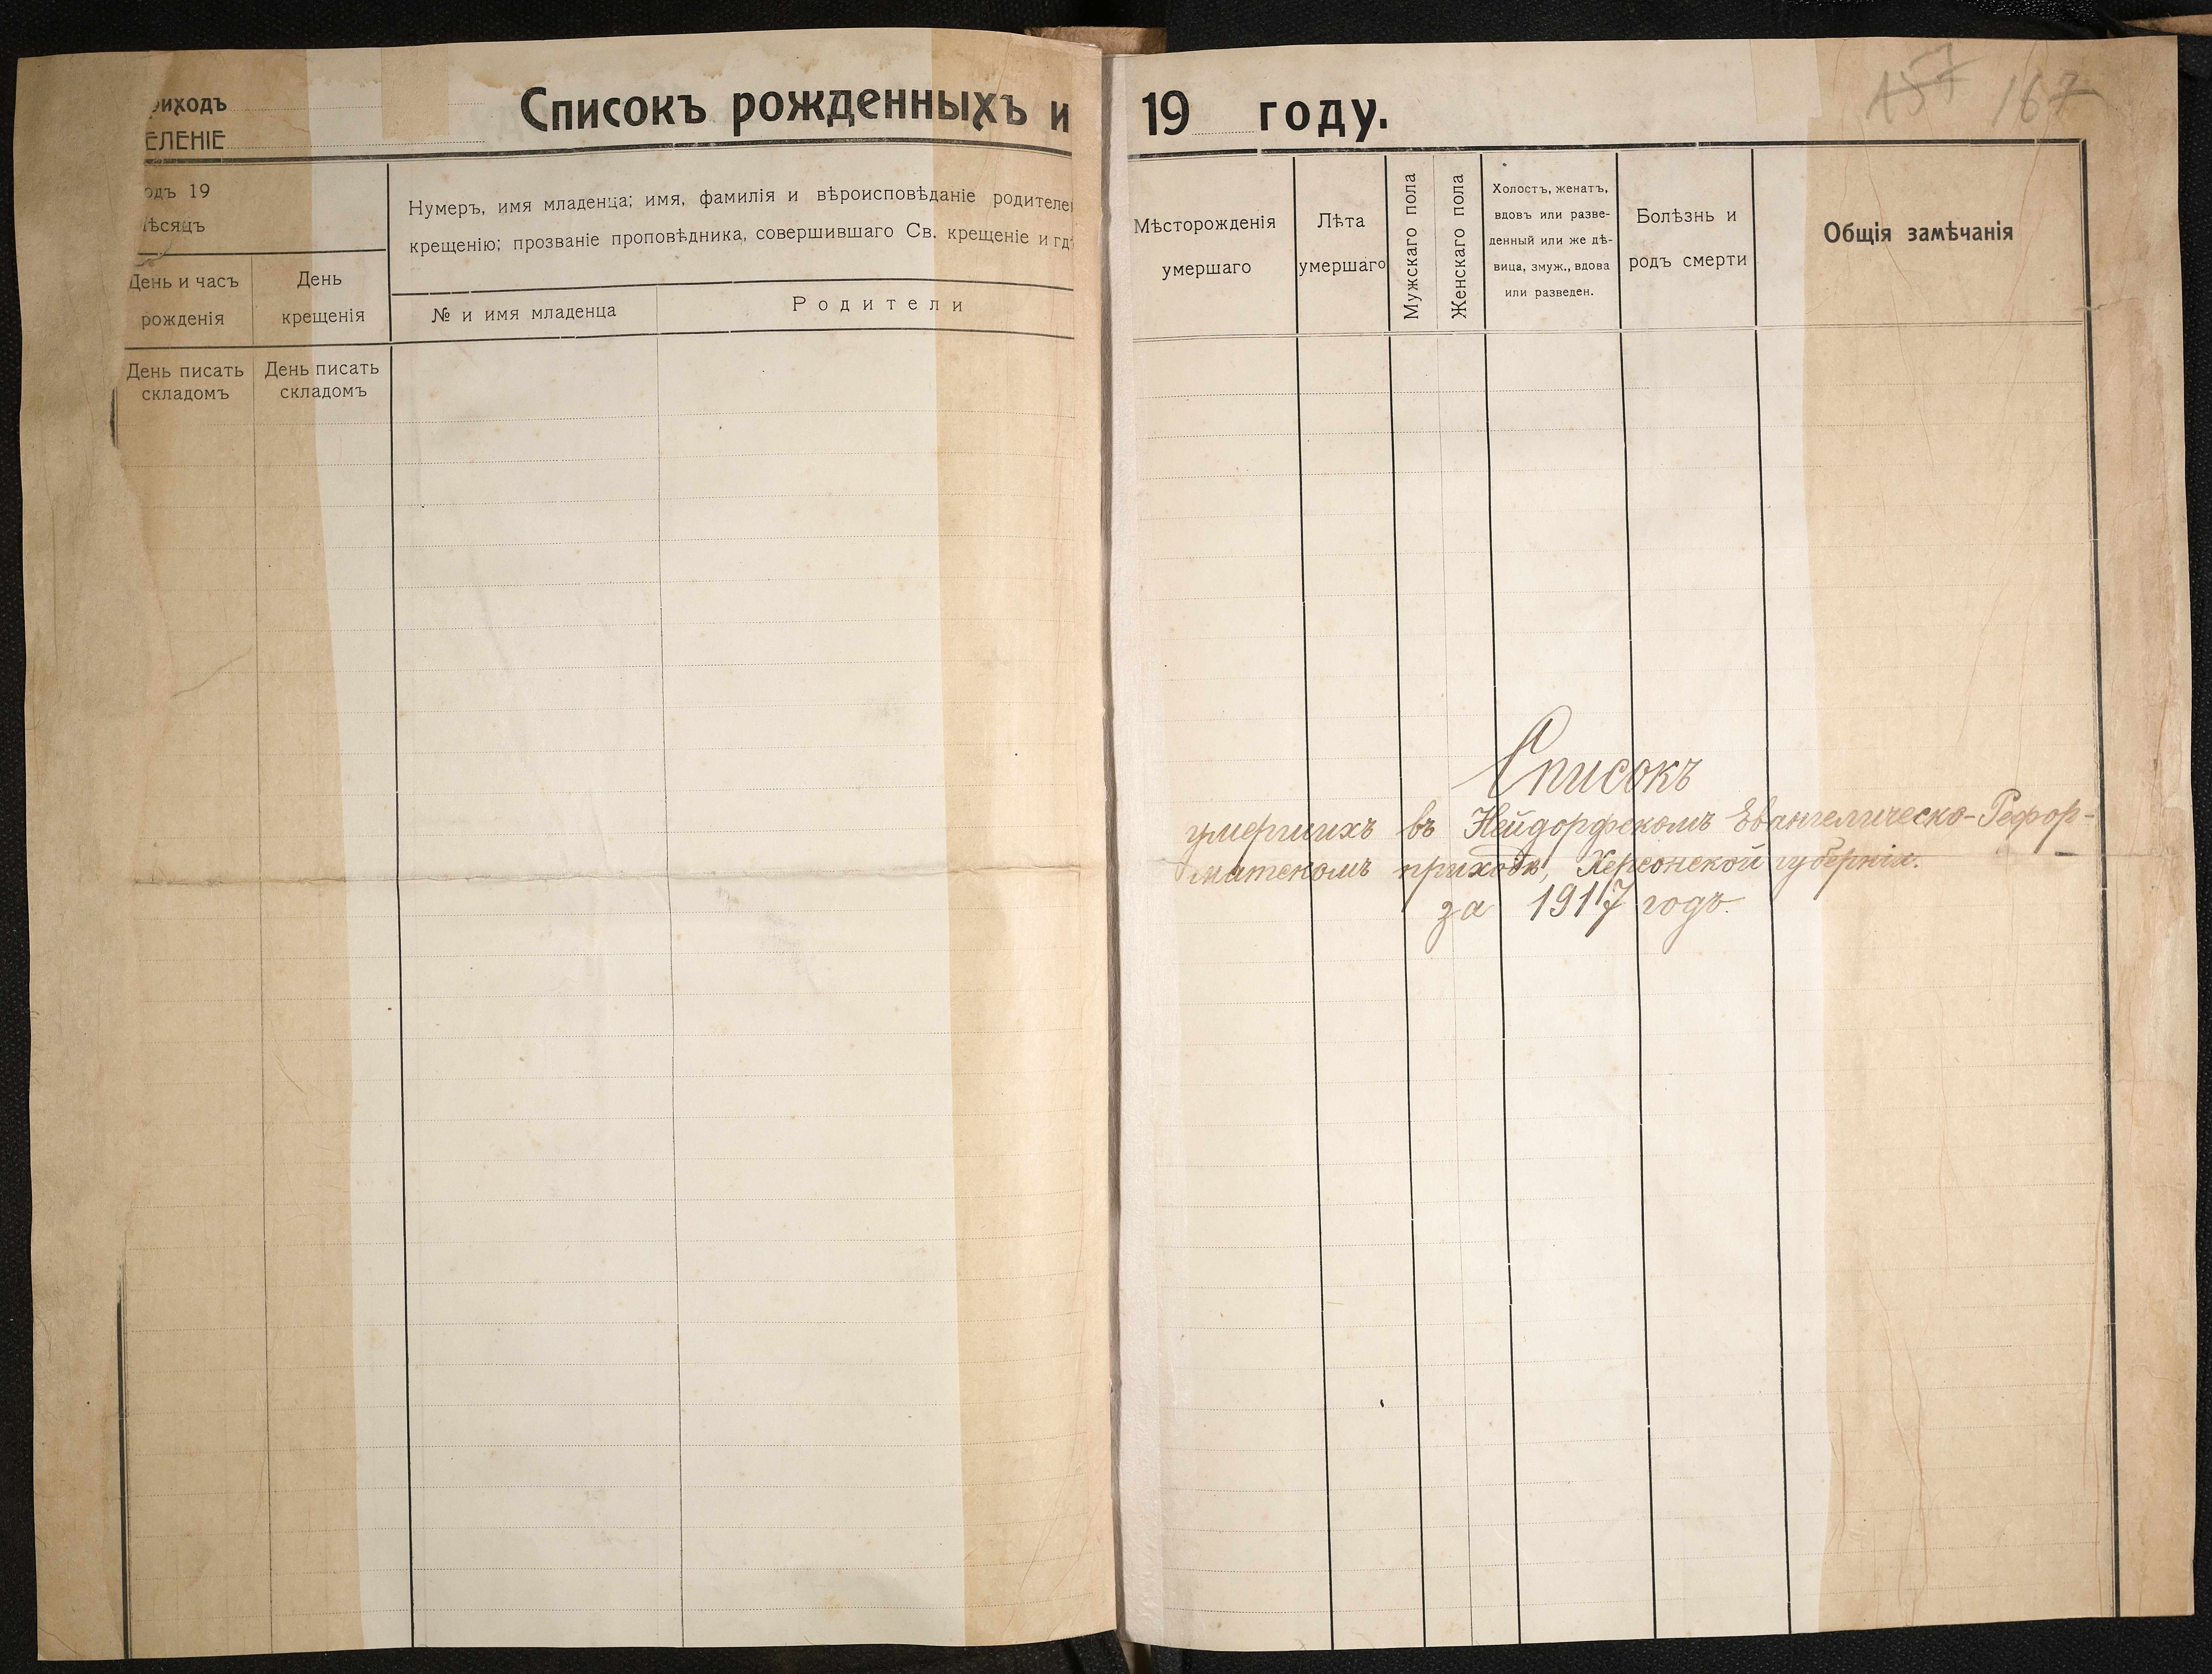 риходъ
ЕЛЕНІЕ
Списокъ рожденныхъ и
одъ 19
ѣсяцъ
Нумеръ, имя младенца; имя, фамилія и вѣроисповѣданіе родителе
крещенію; прозваніе проповѣдника, совершившаго Св. крещеніе и гд
День и часъ
рожденія
День
крещенія
№ и имя младенца
Родители
День писать
складомъ
День писать
складомъ
157 167
19 году.
Мѣсторожденія
умершаго
Лѣта
умершаго
Мужскаго пола
Женскаго пола
Холостъ, женатъ,
вдовъ или разве-
денный или же дѣ-
вица, змуж., вдова
или разведен.
Болѣзнь и
родъ смерти
Общія замѣчанія
Списокъ
умершихъ въ Нейдорфскомъ Евангелическо-Рефор-
матскомъ приходѣ, Херсонской губерніи.
за 1917 годъ.